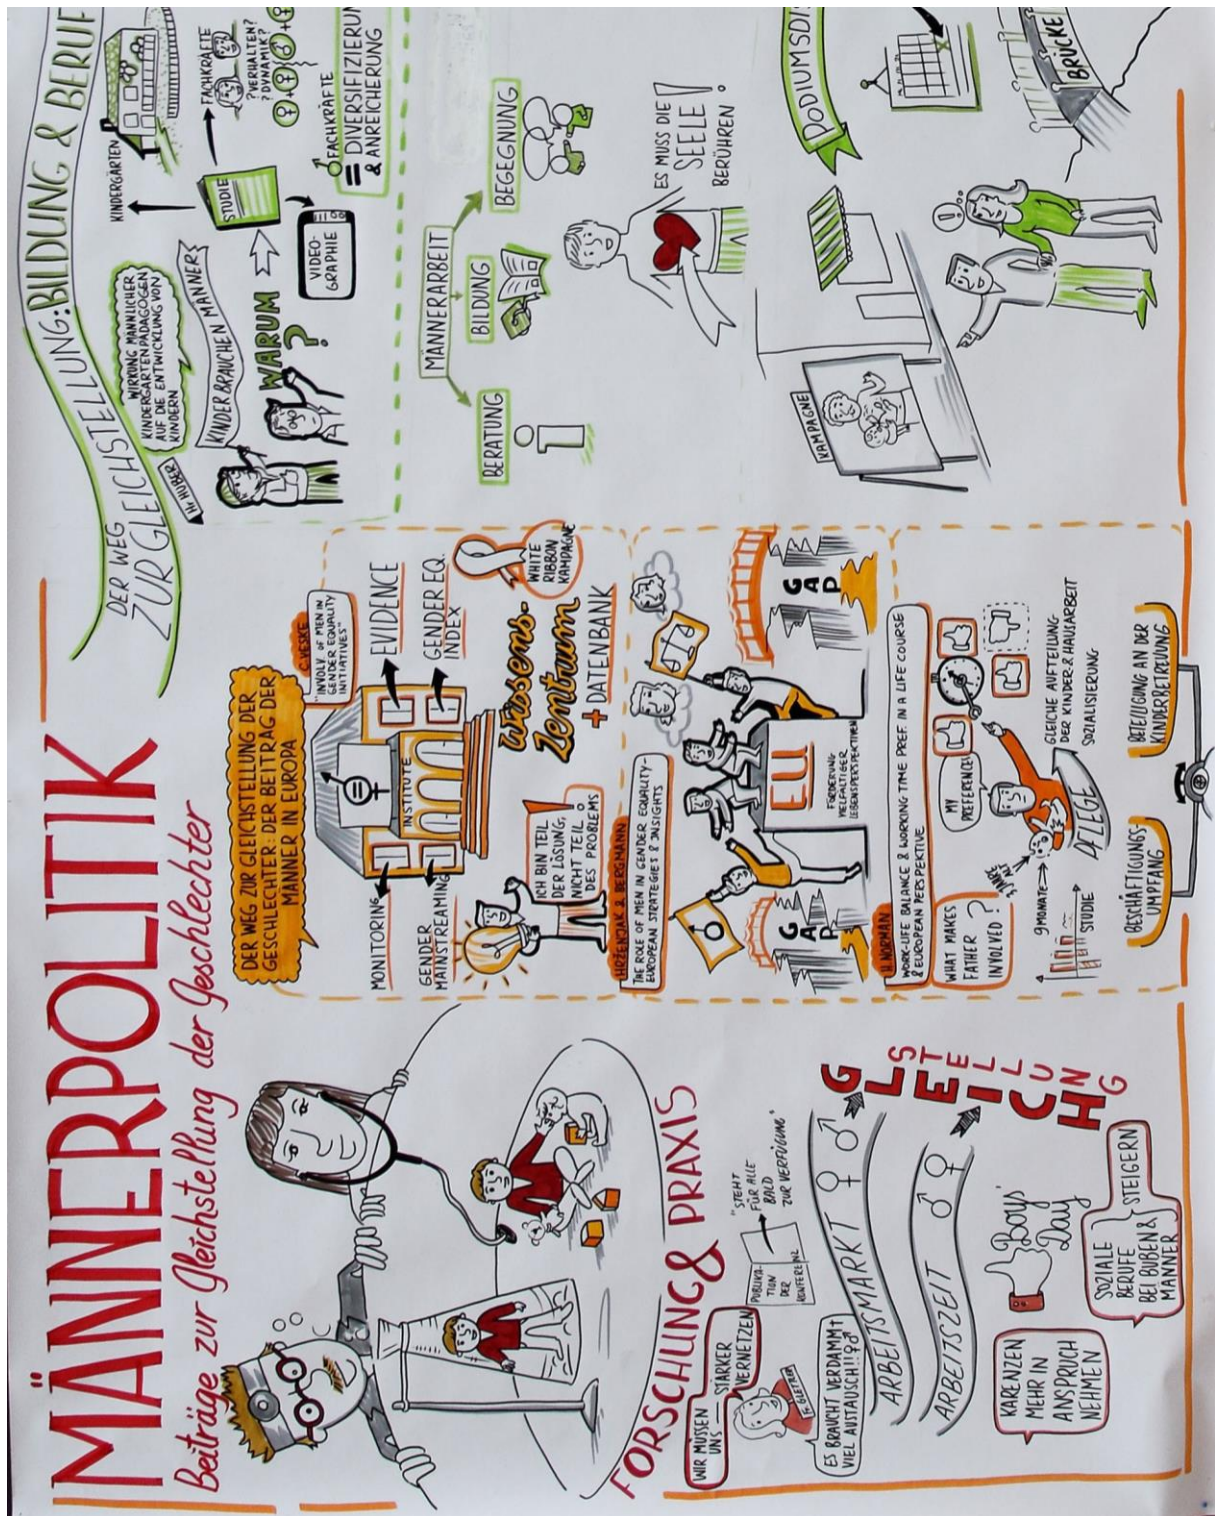 MÄNNERPOLITIK
Beiträge zur Gleichstellung der Geschlechter
FORSCHUNG & PRAXIS
WIR MÜSSEN
UNS STÄRKER
VERNETZEN
PUBLIKA-
TION
DER
KONFERENZ
"STEHT
FÜR ALLE
BALD
ZUR VERFÜGUNG"
ES BRAUCHT VERDAMMT
VIEL AUSTAUSCH!!
ARBEITSMARKT
ARBEITSZEIT
GLEICH
STELLUNG
KARENZEN
MEHR IN
ANSPRUCH
NEHMEN
Boys'
Day
SOZIALE
BERUFE
BEI BUBEN &
MÄNNER
STEIGERN
DER WEG ZUR GLEICHSTELLUNG DER
GESCHLECHTER: DER BEITRAG DER
MÄNNER IN EUROPA
C. VESKE
"INVOLV. OF MEN IN
GENDER EQUALITY
INITIATIVES"
INSTITUTE
MONITORING
GENDER
MAINSTREAMING
EVIDENCE
GENDER EQ.
INDEX
ICH BIN TEIL
DER LÖSUNG,
NICHT TEIL
DES PROBLEMS
Wissens-
Zentrum
+ DATENBANK
WHITE
RIBBON
KAMPAGNE
HRŽENJAK & BERGMANN
THE ROLE OF MEN IN GENDER EQUALITY-
EUROPEAN STRATEGIES & INSIGHTS
GAP
EU
FÖRDERUNG
VIELFÄLTIGER
LEBENSPERSPEKTIVEN
GAP
H. NORMAN
WORK-LIFE BALANCE & WORKING TIME PREF. IN A LIFE COURSE
& EUROPEAN PERSPEKTIVE
WHAT MAKES
FATHER
INVOLVED?
MY
PREFERENCES
9 MONATE
3 JAHRE
STUDIE
PFLEGE
GLEICHE AUFTEILUNG
DER KINDER & HAUSARBEIT
SOZIALISIERUNG
BESCHÄFTIGUNGS-
UMPFANG
BETEILIGUNG AN DER
KINDERBETREUUNG
DER WEG
ZUR GLEICHSTELLUNG: BILDUNG & BERUF
Hr HUBER
WIRKUNG MÄNNLICHER
KINDERGARTENPÄDAGOGEN
AUF DIE ENTWICKLUNG VON
KINDERN
KINDER BRAUCHEN MÄNNER
WARUM
?
STUDIE
KINDERGÄRTEN
VIDEO-
GRAPHIE
FACHKRÄFTE
?VERHALTEN?
?DYNAMIK?
FACHKRÄFTE
= DIVERSIFIZIERUN
& ANREICHERUNG
MÄNNERARBEIT
BERATUNG
BILDUNG
BEGEGNUNG
ES MUSS DIE
SEELE!
BERÜHREN
PODIUMSDI
KAMPAGNE
BRÜCKE